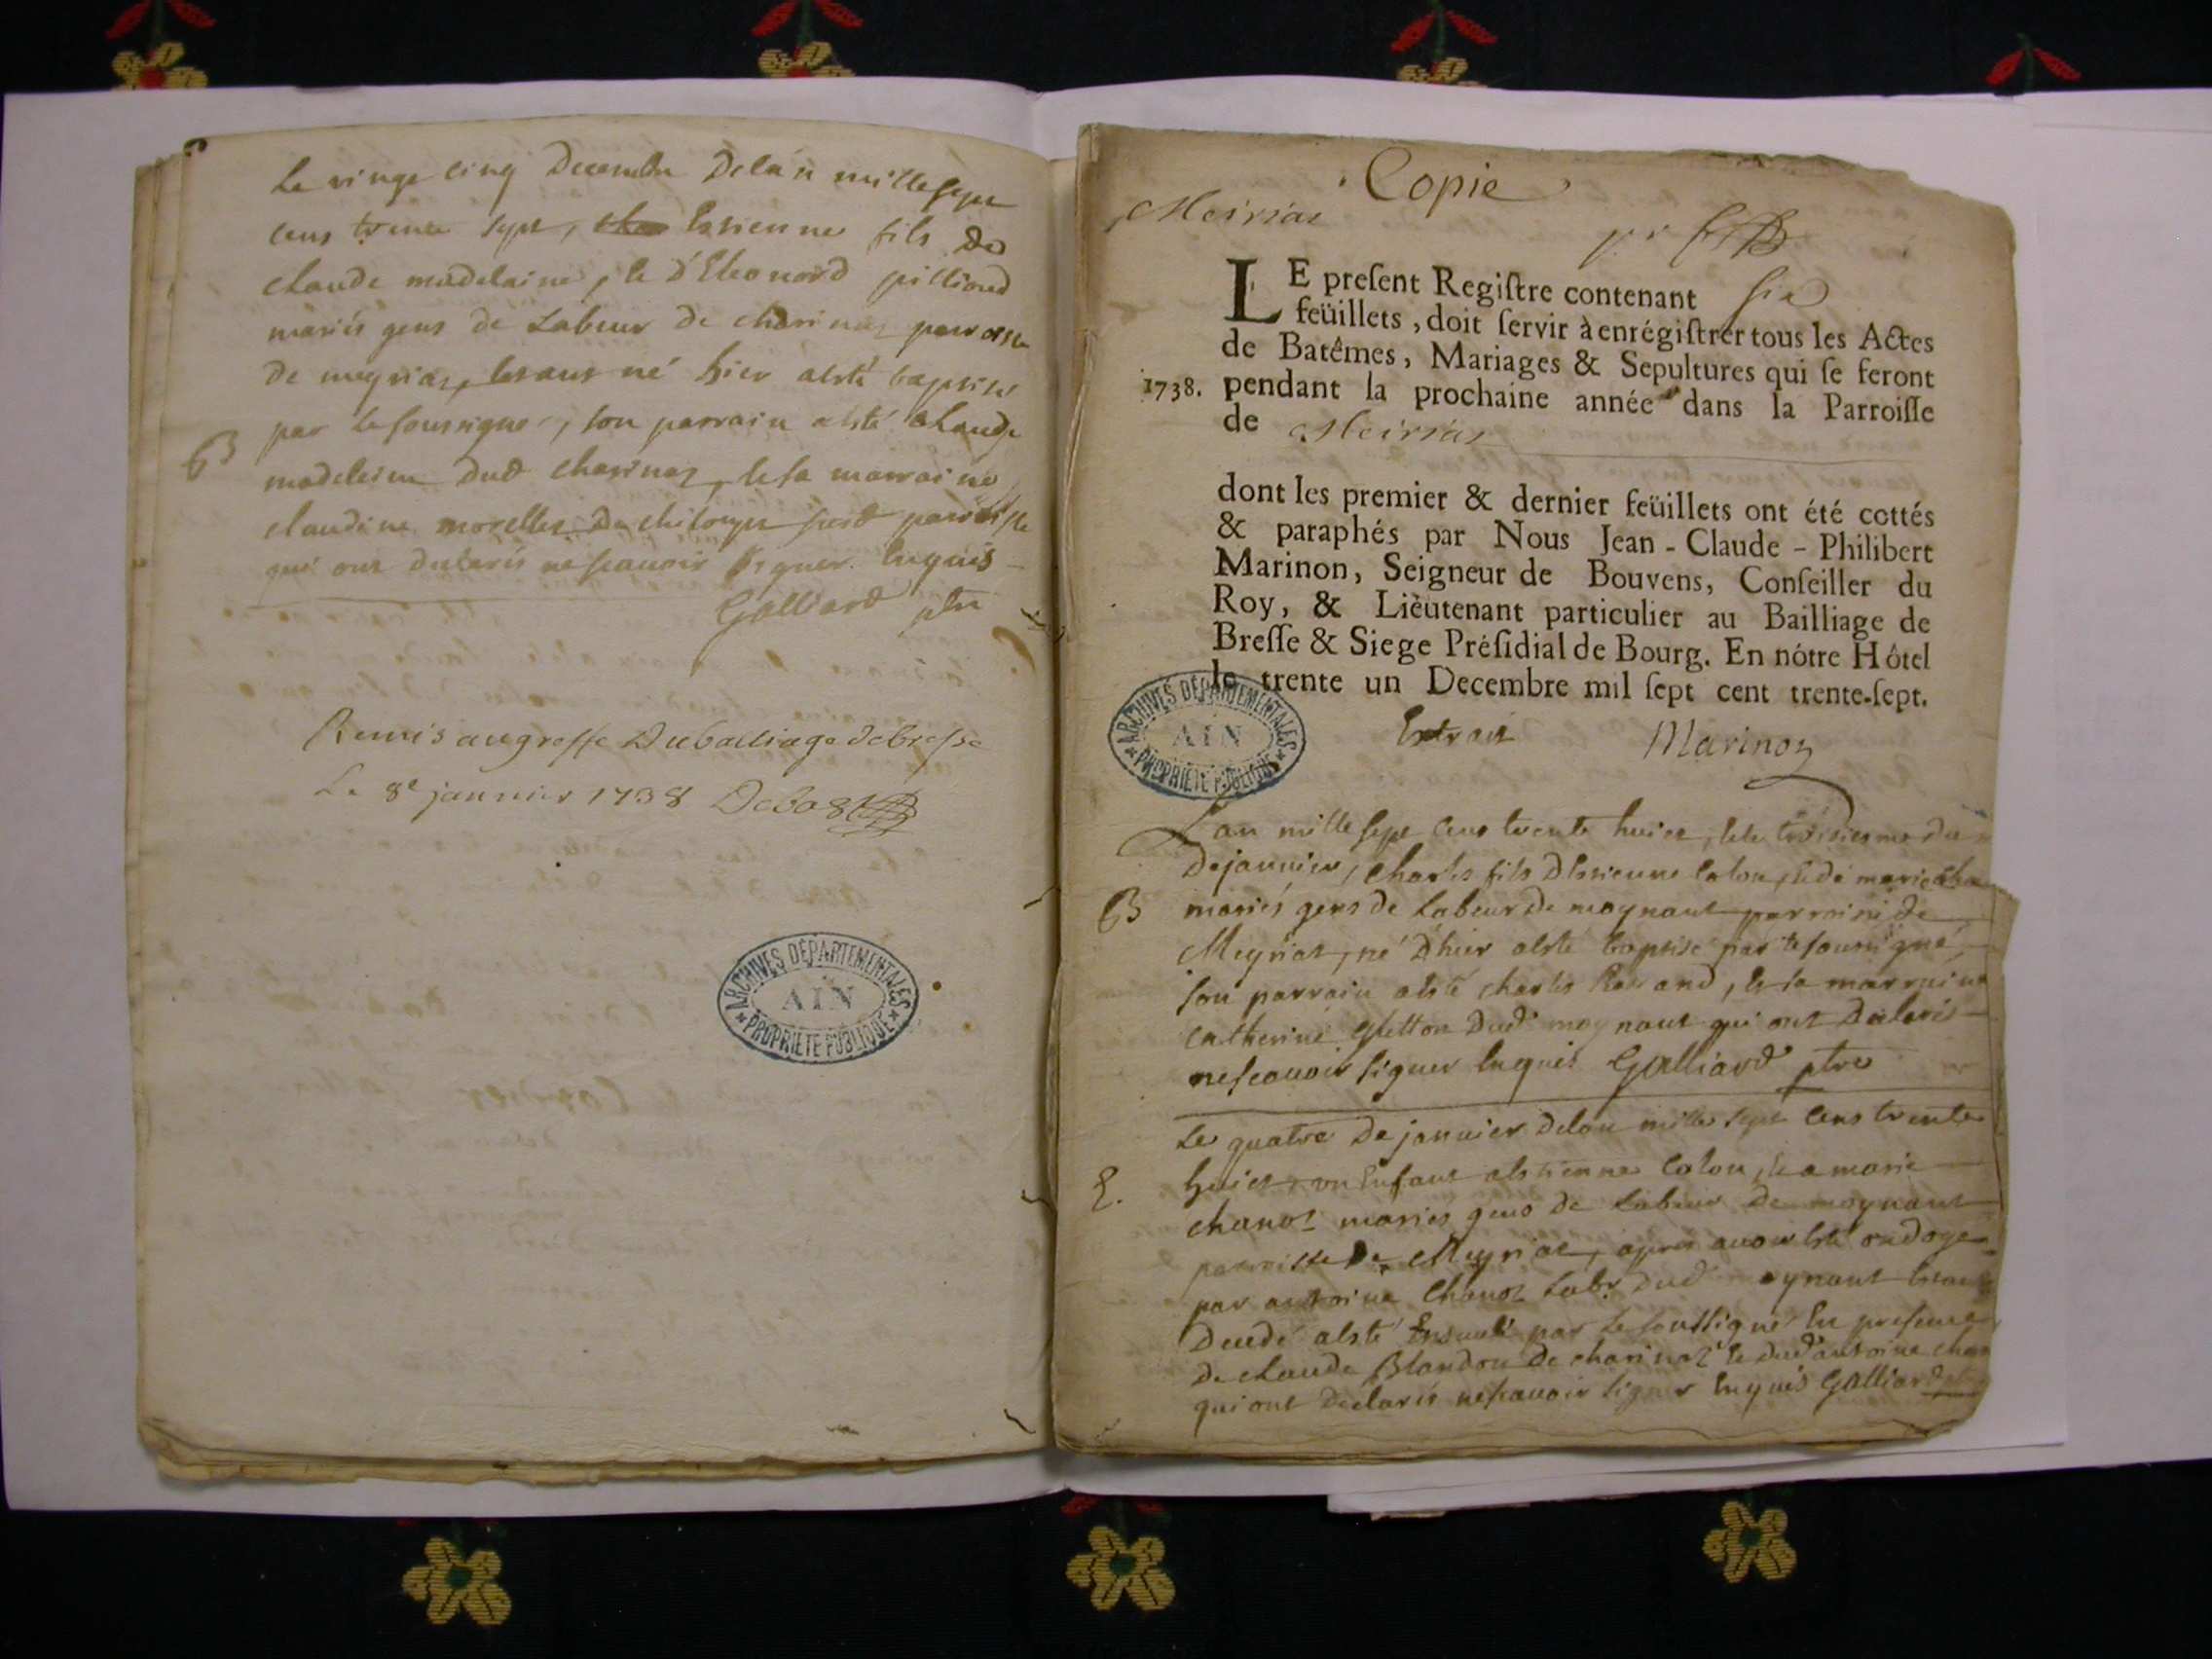 Le vingt cinq Decembre Delan mille sept
cens trente sept, Estienne fils De
claude madelaine, le d'Eleonord pilliond
mariés gens de Labeur de charinaz parroisse
de meyriaz, estant né hier aesté baptisé
par le soussigné, son parrain aesté claude
B
madelaine dud charinaz, et sa marraine
claudine morellez de parroisse
qui ont declarés nescavoir signer Enquis
Galliard ptre
Remis augreffe Dubailliage debresse
Le 8e janvier 1738 Debos
ARCHIVES DÉPARTEMENTALES
AIN
* PROPRIÉTÉ PUBLIQUE *
Copie
Meiriat
LE present Registre contenant six
feüillets, doit servir à enrégistrer tous les Actes
de Batêmes, Mariages & Sepultures qui se feront
1738. pendant la prochaine année dans la Parroisse
de Meiriat
dont les premier & dernier feüillets ont été cottés
& paraphés par Nous Jean-Claude-Philibert
Marinon, Seigneur de Bouvens, Conseiller du
Roy, & Liéutenant particulier au Bailliage de
Bresse & Siege Présidial de Bourg. En nôtre Hôtel
le trente un Decembre mil sept cent trente-sept.
ARCHIVES DÉPARTEMENTALES
AIN
* PROPRIÉTÉ PUBLIQUE *
Extrait Marinon
L'an mille sept cens trente huict, et le troisiesme du
dejanvier, charles fils dEstienne Colon, et de marie
B
mariés gens de Labeur de moynant parroisse de
Meyriat, né d'hier aesté baptisé par le soussigné,
son parrain aesté charles, et sa marraine
catherine dud moynant qui ont delarés
nescavoir signer Enquis Galliard ptre
Le quatre de janvier delan mille sept cens trente
E.
huict, un Enfant aEstienne Colon, et a marie
chanoz mariés gens de Labeur de moynant
parroisse De Meyriat, apres avoir Esté ondoyé
par antoine Chanoz Labr. dud moynant Estant
Decedé aesté par le soussigné En presence
de claude Blandon de charinaz et dud antoine
qui ont declarés nescavoir signer Enquis Galliard